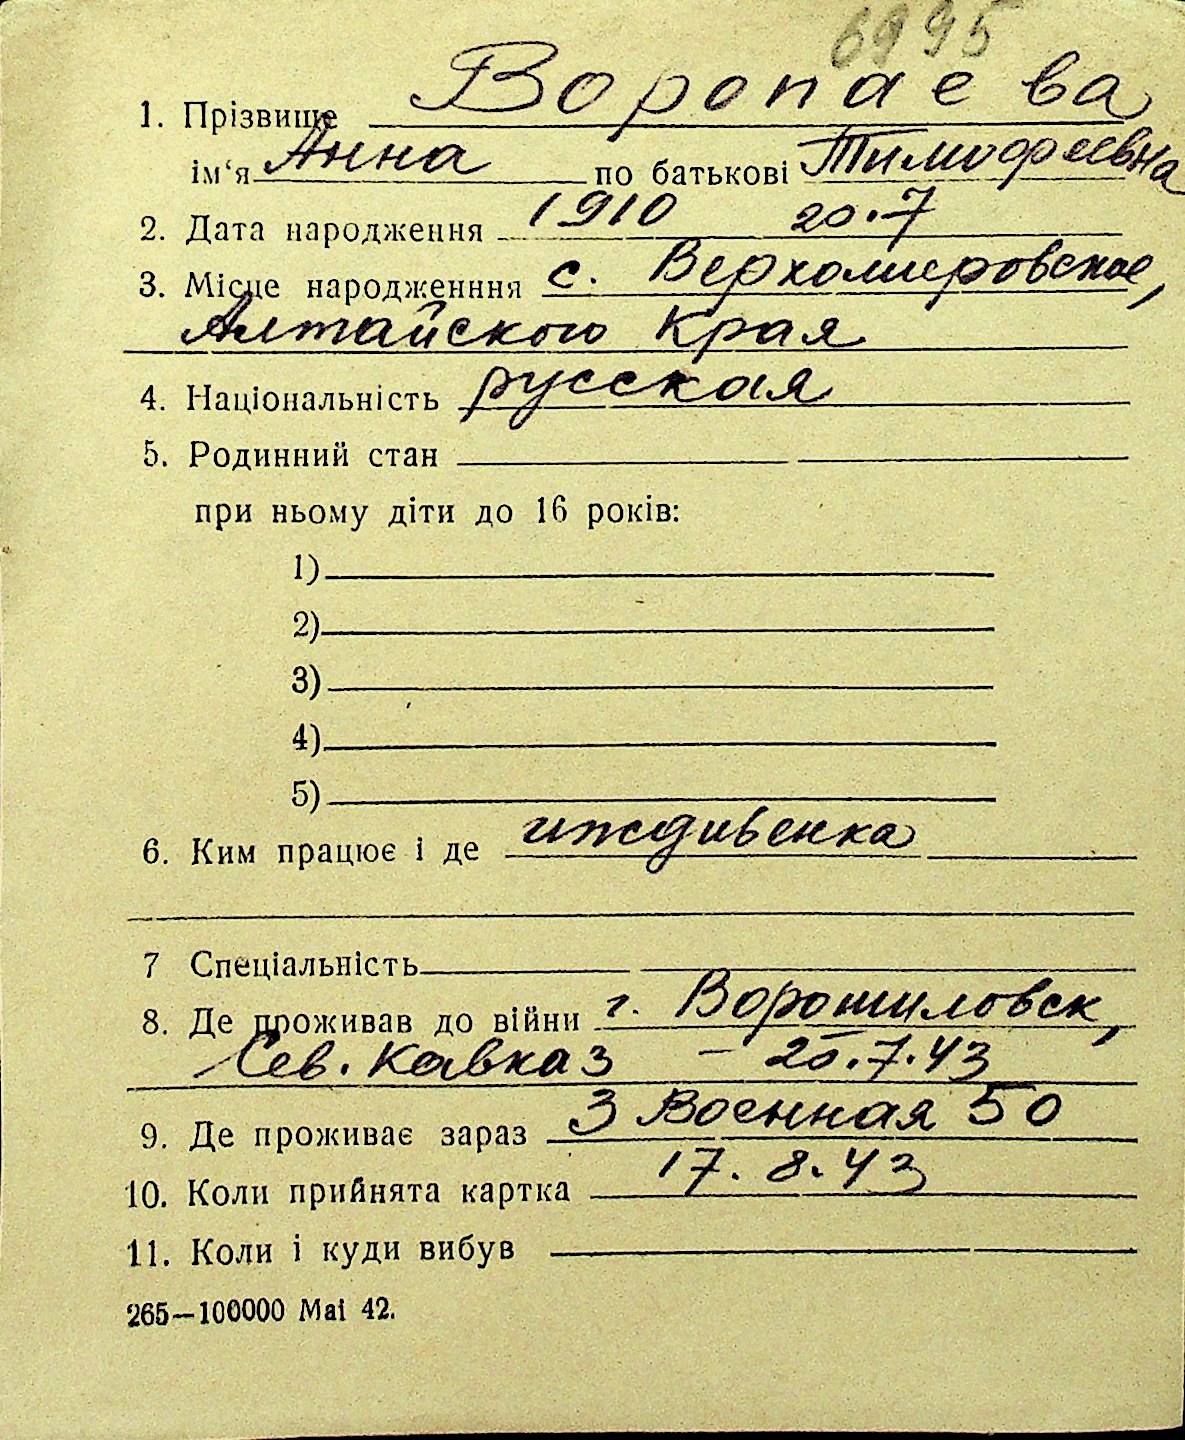 6995
1. Прізвище Воропаева
ім‘я Анна по батькові Тимофеевна
2. Дата народження 1910 20.7
3. Місце народженння с. Верхомировское,
Алтайского края
4. Національність русская
5. Родинний стан
при ньому діти до 16 років:
1)
2)
3)
4)
5)
6. Ким працює і де иждивенка
7 Спеціальність
8. Де проживав до війни г. Ворошиловск,
Сев. Кавказ – 20.7.43
9. Де проживає зараз 3 Военная 50
10. Коли прийнята картка 17. 8. 43
11. Коли і куди вибув
265—100000 Mai 42.